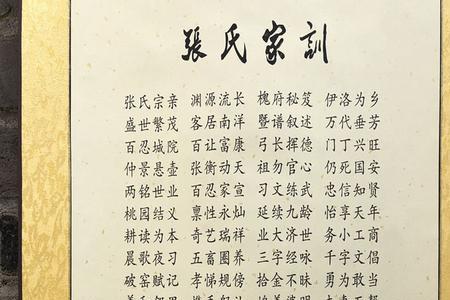 張氏家訓
张氏宗亲 渊源流长 槐府秘笈 伊洛为乡
盛世繁茂 客居南洋 暨谱叙述 万代垂芳
百忍城院 百让富康 弓长官德 门丁兴旺
仲景悬壶 张衡动天 祖勿忘心 仍死国安
两铭世业 百忍家宣 习文练武 忠信知贤
桃园结义 禀性永灿 延续九龄 怡享天年
耕读为本 奇艺瑞祥 业大济世 务小工商
晨歌夜习 五畜圈养 三字经咏 千字文倡
破窑赋记 孝悌规傍 拾金不昧 勇为敢当